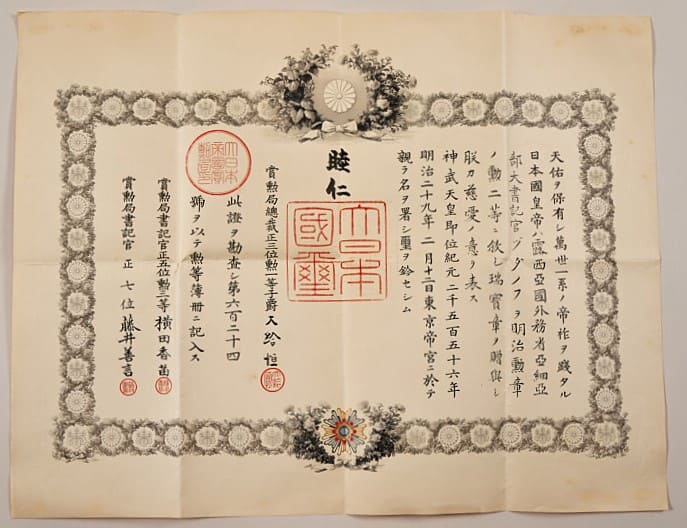 天佑ヲ保有シ萬世一系ノ帝祚ヲ踐タル
日本國皇帝ハ露西亞國外務省亞細亞
部大書記官グダノフヲ明治勲章
ノ勲二等ニ敘シ瑞寶章ヲ贈與シ
朕カ慈愛ノ意ヲ表ス
神武天皇即位紀元二千五百五十六年
明治二十九年二月十二日東京帝宮ニ於テ
親ラ名ヲ署シ璽ヲ鈐セシム
睦仁
大日本
國璽
賞勲局總裁正三位勲一等子爵大給恒
此證ヲ勘査シ第六百二十四
號ヲ以テ勲等簿冊ニ記入ス
賞勲局書記官正五位勲三等横田香苗
賞勲局書記官正七位藤井善言